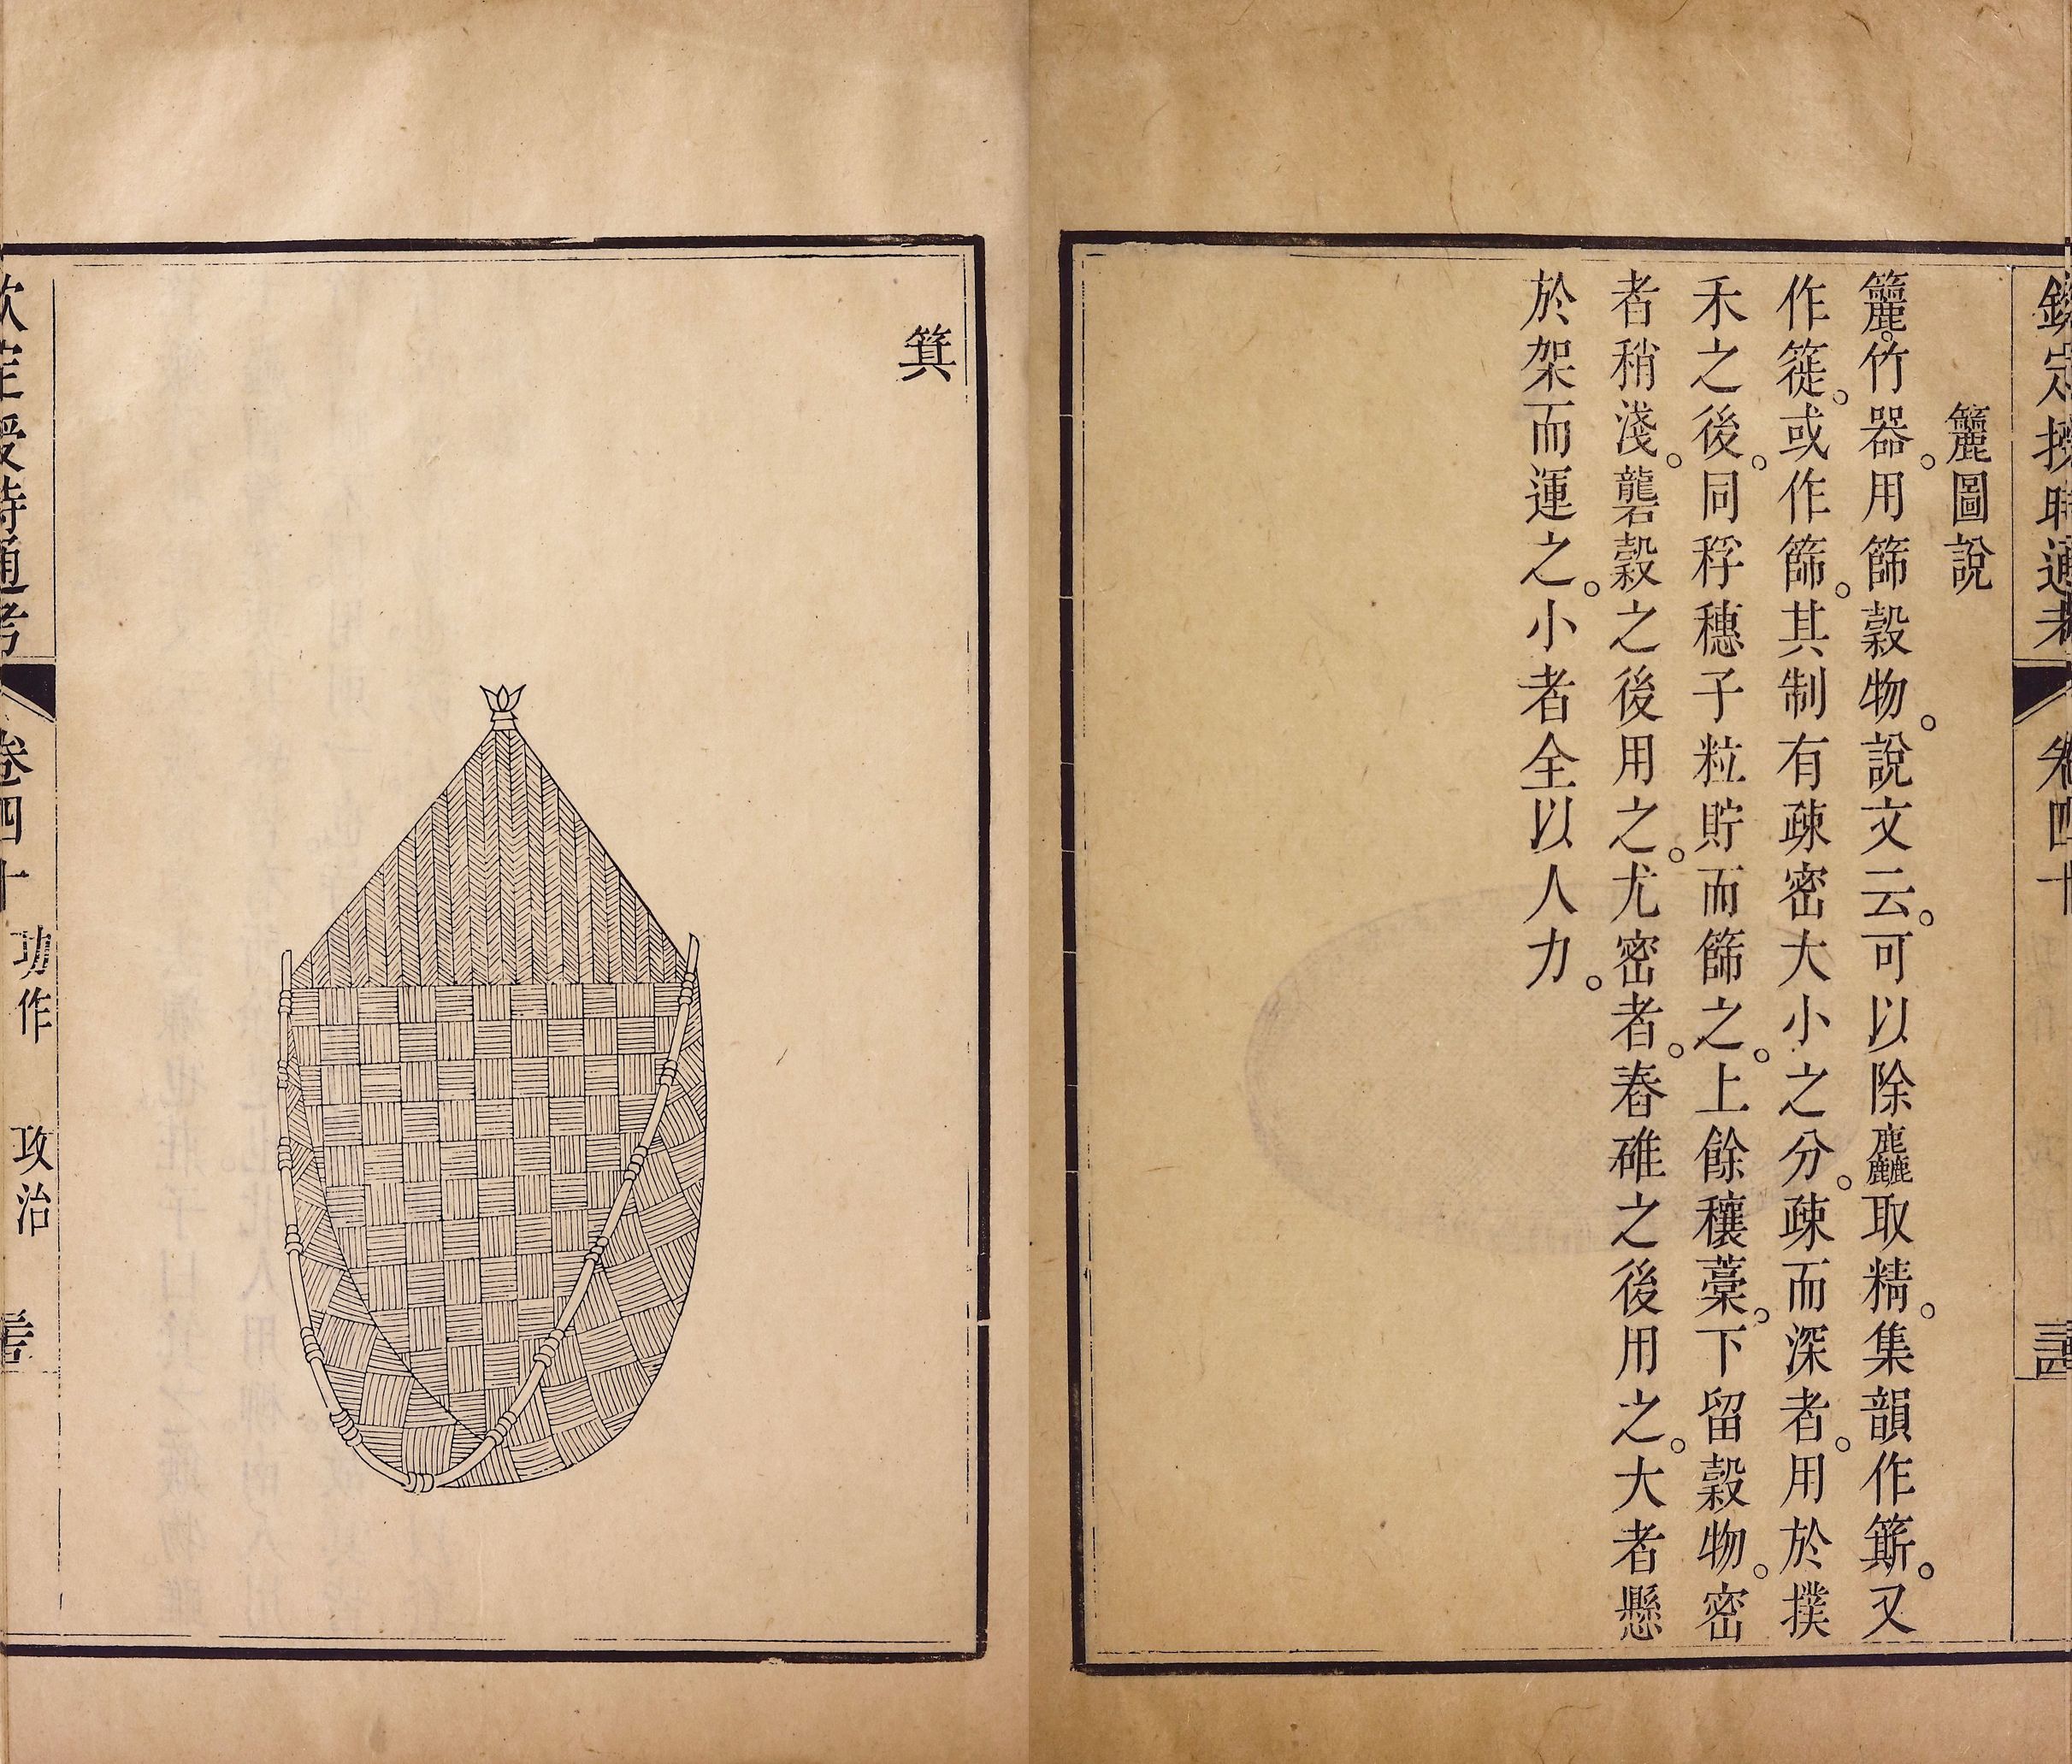 欽定授時通考 卷四十
簏圖說
簏。竹器。用篩穀物。說文云。可以除麤取精。集韻作簛。又
作簁。或作篩。其制有疎密大小之分。疎而深者。用於撲
禾之後。同稃穗子粒貯而篩之。上餘穰藁。下留穀物。密
者稍淺。礱穀之後用之。尤密者。舂碓之後用之。大者懸
於架而運之。小者全以人力。
箕
欽定授時通考 卷四十 功作 攻治